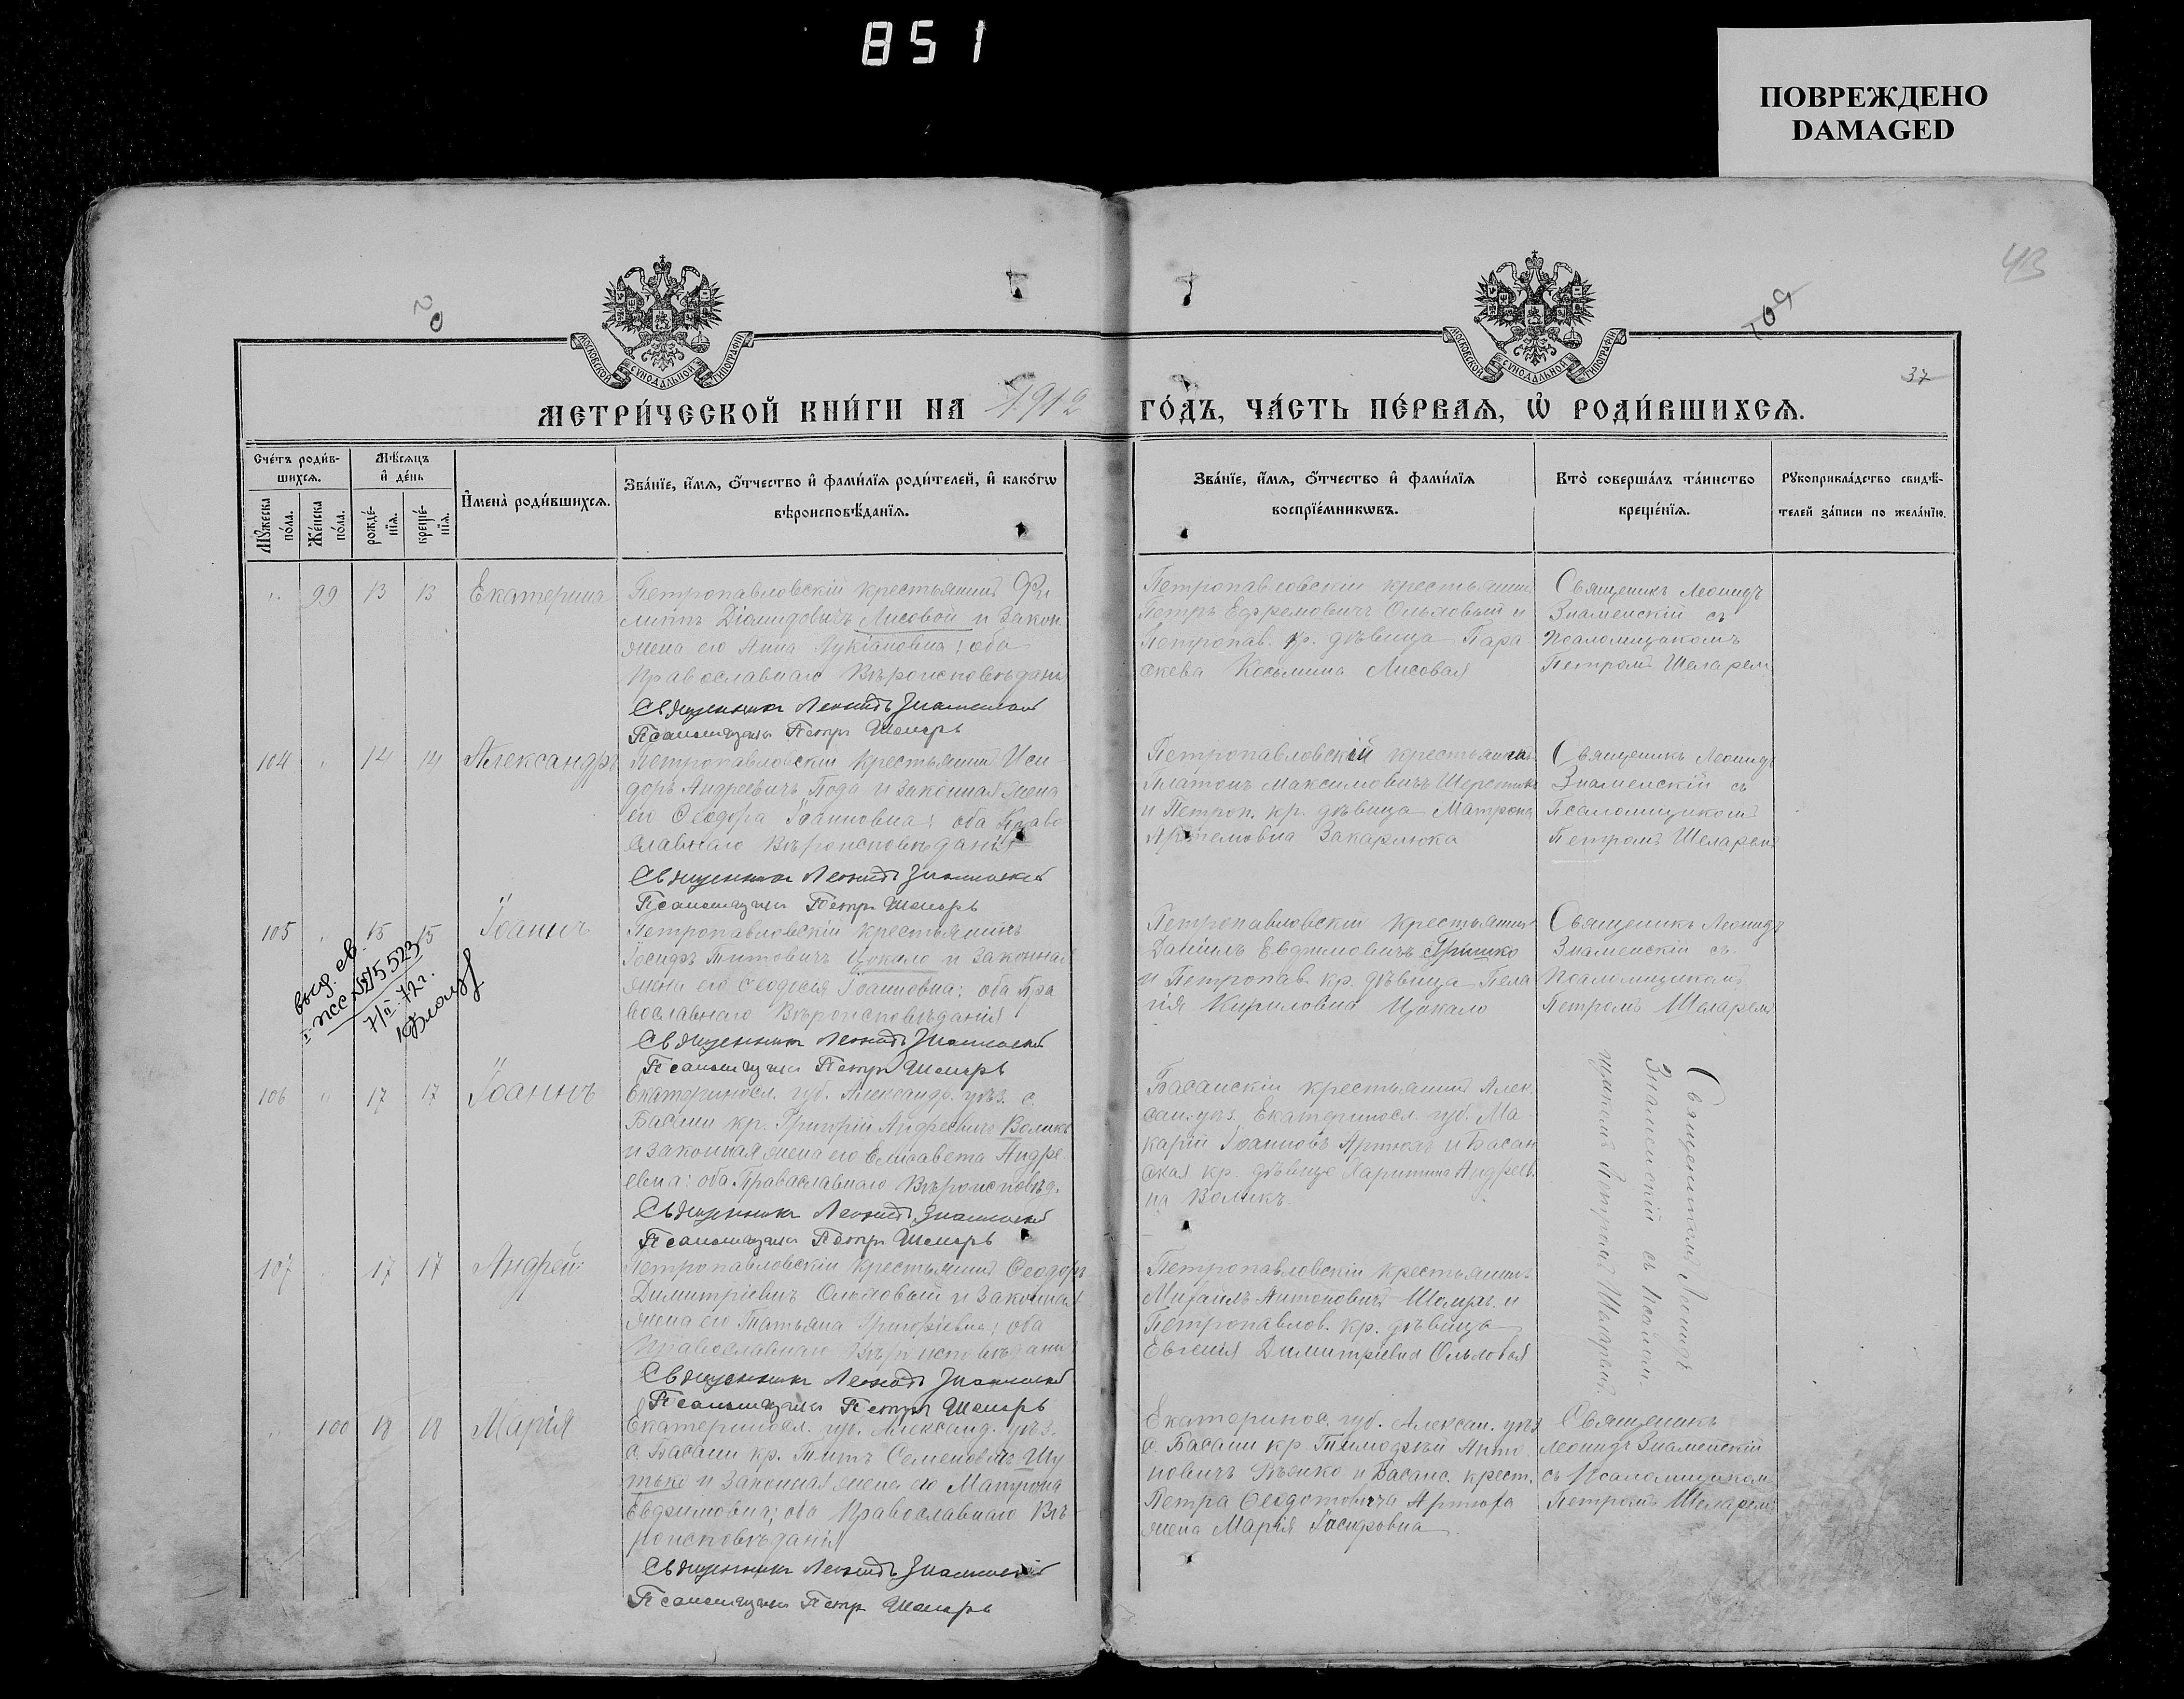 851
ПОВРЕЖДЕНО
DAMAGED
43
20
37
МОСКОВСКОЙ СѴНОДАЛЬНОЙ ТИПОГРАФІИ
МОСКОВСКОЙ СѴНОДАЛЬНОЙ ТИПОГРАФІИ
МЕТРИ́ЧЕСКОЙ КНИ́ГИ НА 1912 ГО́ДЪ, ЧА́СТЬ ПЕ́РВАѦ, Ѡ҆ РОДИ́ВШИХСѦ.
Сче́тъ роди́в-
шихсѧ.
Мꙋ́жеска по́ла.
Же́нска по́ла.
Мѣ́сѧцъ
и҆ де́нь
рожде́-
нїѧ.
креще́-
нїѧ.
И҆мена̀ роди́вшихсѧ.
Зва́нїе, и҆́мѧ, ѻ҆́тчество и҆ фами́лїѧ роди́телей, и҆ како́гѡ
вѣроисповѣ́данїѧ.
Зва́нїе, и҆́мѧ, ѻ҆́тчество и҆ фами́лїѧ
воспрїе́мникѡвъ.
Кто̀ соверша́лъ та́инство
креще́нїѧ.
Рꙋкоприкла́дство свидѣ́-
телей за́писи по жела́нїю.
99 13 13 Екатерина
Петропавловскій крестьянинъ Фи
липпъ Діомидовичъ Лисовой и закон.
жена его Анна Лукіановна; оба
Православнаго Вѣроисповѣданія
Священникъ Леонидъ Знаменскій
Псаломщикъ Петръ Шеларь
Петропавловскій крестьянинъ
Петръ Ефремовичъ Ольховый и
Петропав. кр. дѣвица Пара
скева Косьмина Лисовая
Священикъ Леонидъ
Знаменскій съ
Псаломщикомъ
Петромъ Шеларем
104 14 14 Александръ
Петропавловскій крестьянинъ Иси
доръ Андреевичъ Пода и законная жена
его Ѳеодора Іоанновна; оба Право
славнаго Вѣроисповѣданія
Священникъ Леонидъ Знаменскій
Псаломщикъ Петръ Шеларь
Петропавловскій крестьянинъ
Платонъ Максимовичъ
и Петроп. кр. дѣвица Матрона
Артемовна Закарлюка
Священикъ Леонидъ
Знаменскій съ
Псаломщикомъ
Петромъ Шеларемъ
105 15 15 Іоаннъ
Петропавловскій крестьянинъ
Іосифъ Титовичъ Цокало и законная
жена его Ѳеодосія Іоанновна; оба Пра
вославнаго Вѣроисповѣданія
Священникъ Леонидъ Знаменскій
Псаломщикъ Петръ Шеларь
Петропавловскій крестьянинъ
Даніилъ Евфимовичъ Гришко
и Петропав. кр. дѣвица Пела
гія Кириловна Цокало
Священикъ Леонидъ
Знаменскій съ
Псаломщикомъ
Петромъ Шеларемъ
выд. св.
7/II-72 г.
106 17 17 Іоаннъ
Екатериносл. губ. Александр. уѣз. с.
Басани кр. Григорій Андреевичъ Воликъ
и законная жена его Елисавета Андре
евна: оба Православнаго Вѣроисповѣд.
Священникъ Леонидъ Знаменскій
Псаломщикъ Петръ Шеларь
Басанскій крестьянинъ Алек
сан. уѣз. Екатериносл. губ. Ма
карій Іоанновъ Артюхъ и Басан
ская кр. дѣвица Харитина Андреев.
на Воликъ.
Священникомъ Леонидъ
Знаменскій съ Псалом
щикомъ Петромъ Шеларемъ.
107 17 17 Андрей
Петропавловскій крестьянинъ Ѳеодоръ
Димитріевичъ Ольховый и законная
жена его Татьяна Григоріевна; оба
Православнаго Вѣроисповѣдани
Священникъ Леонидъ Знаменскій
Псаломщикъ Петръ Шеларь
Петропавловскій крестьянинъ
Михаилъ Антоновичъ Шеларь и
Петропавлов. кр. дѣвица
Евгенія Димитріевна Ольховая
100 18 18 Марія
Екатериносл. губ. Александ. уѣз.
с. Басани кр. Титъ Семеновичъ Шу
тько и законная жена его Матрона
Евфимовна; оба Православнаго Вѣ
роисповѣданія
Священникъ Леонидъ Знаменскій
Псаломщикъ Петръ Шеларь
Екатеринос. губ. Алексан. уѣз.
с. Басани кр. Тимофей Анто
новичъ и Басанс. крест.
Петра Ѳеодотовича Артюха
жена Марія Іосифовна
Священикъ
Леонидъ Знаменскій
съ Псаломщиком
Петромъ Шеларем